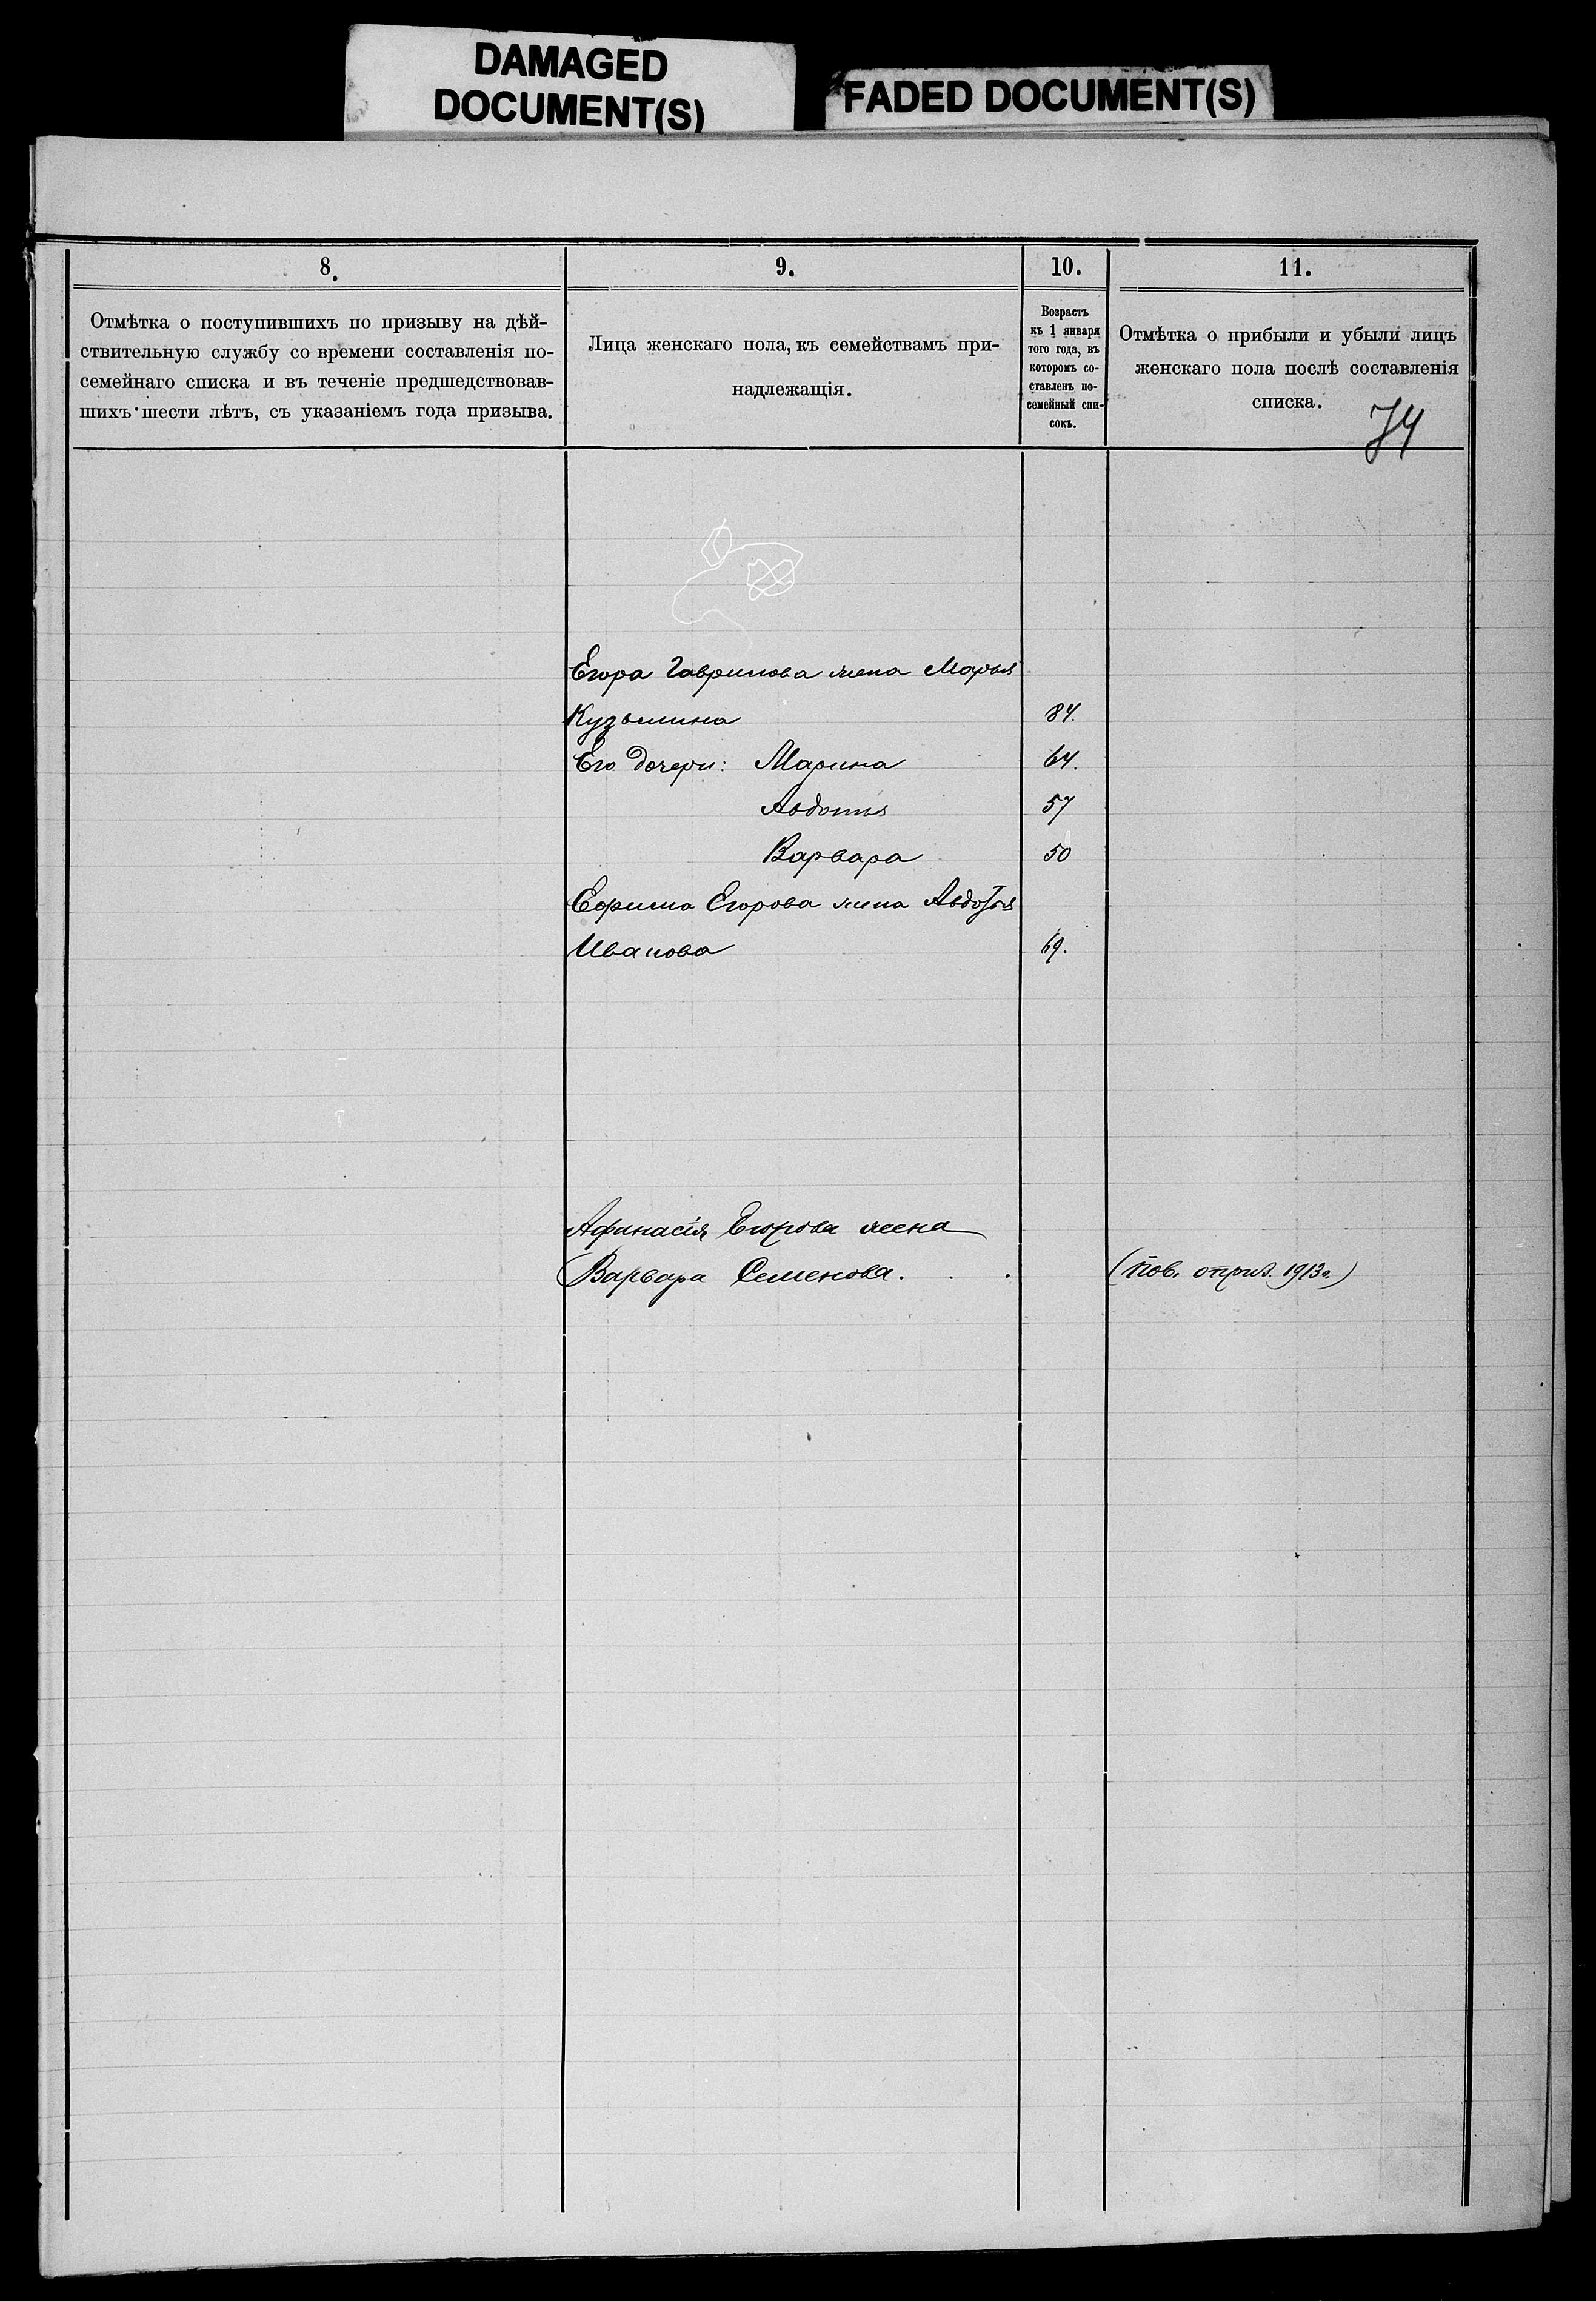 DAMAGED
DOCUMENT(S)
FADED DOCUMENT(S)
8.
Отмѣтка о поступившихъ по призыву на дѣй-
ствительную службу со времени составленія по-
семейнаго списка и въ теченіе предшедствовав-
шихъ шести лѣтъ, съ указаніемъ года призыва.
9.
Лица женскаго пола, къ семействамъ при-
надлежащія.
10.
Возрастъ
къ 1 января
того года, въ
которомъ со-
ставленъ по-
семейный спи-
сокъ.
11.
Отмѣтка о прибыли и убыли лицъ
женскаго пола послѣ составленія
списка.
74
Егора Гаврилова жена Марья
Кузьмина 84.
Его дочери: Марина 64.
Авдотья 57
Варвара 50
Ефима Егорова жена Авдотья
Иванова 69.
Афинасія Егорова жена
Варвара Семенова. (пов. о приз. 1913г.)